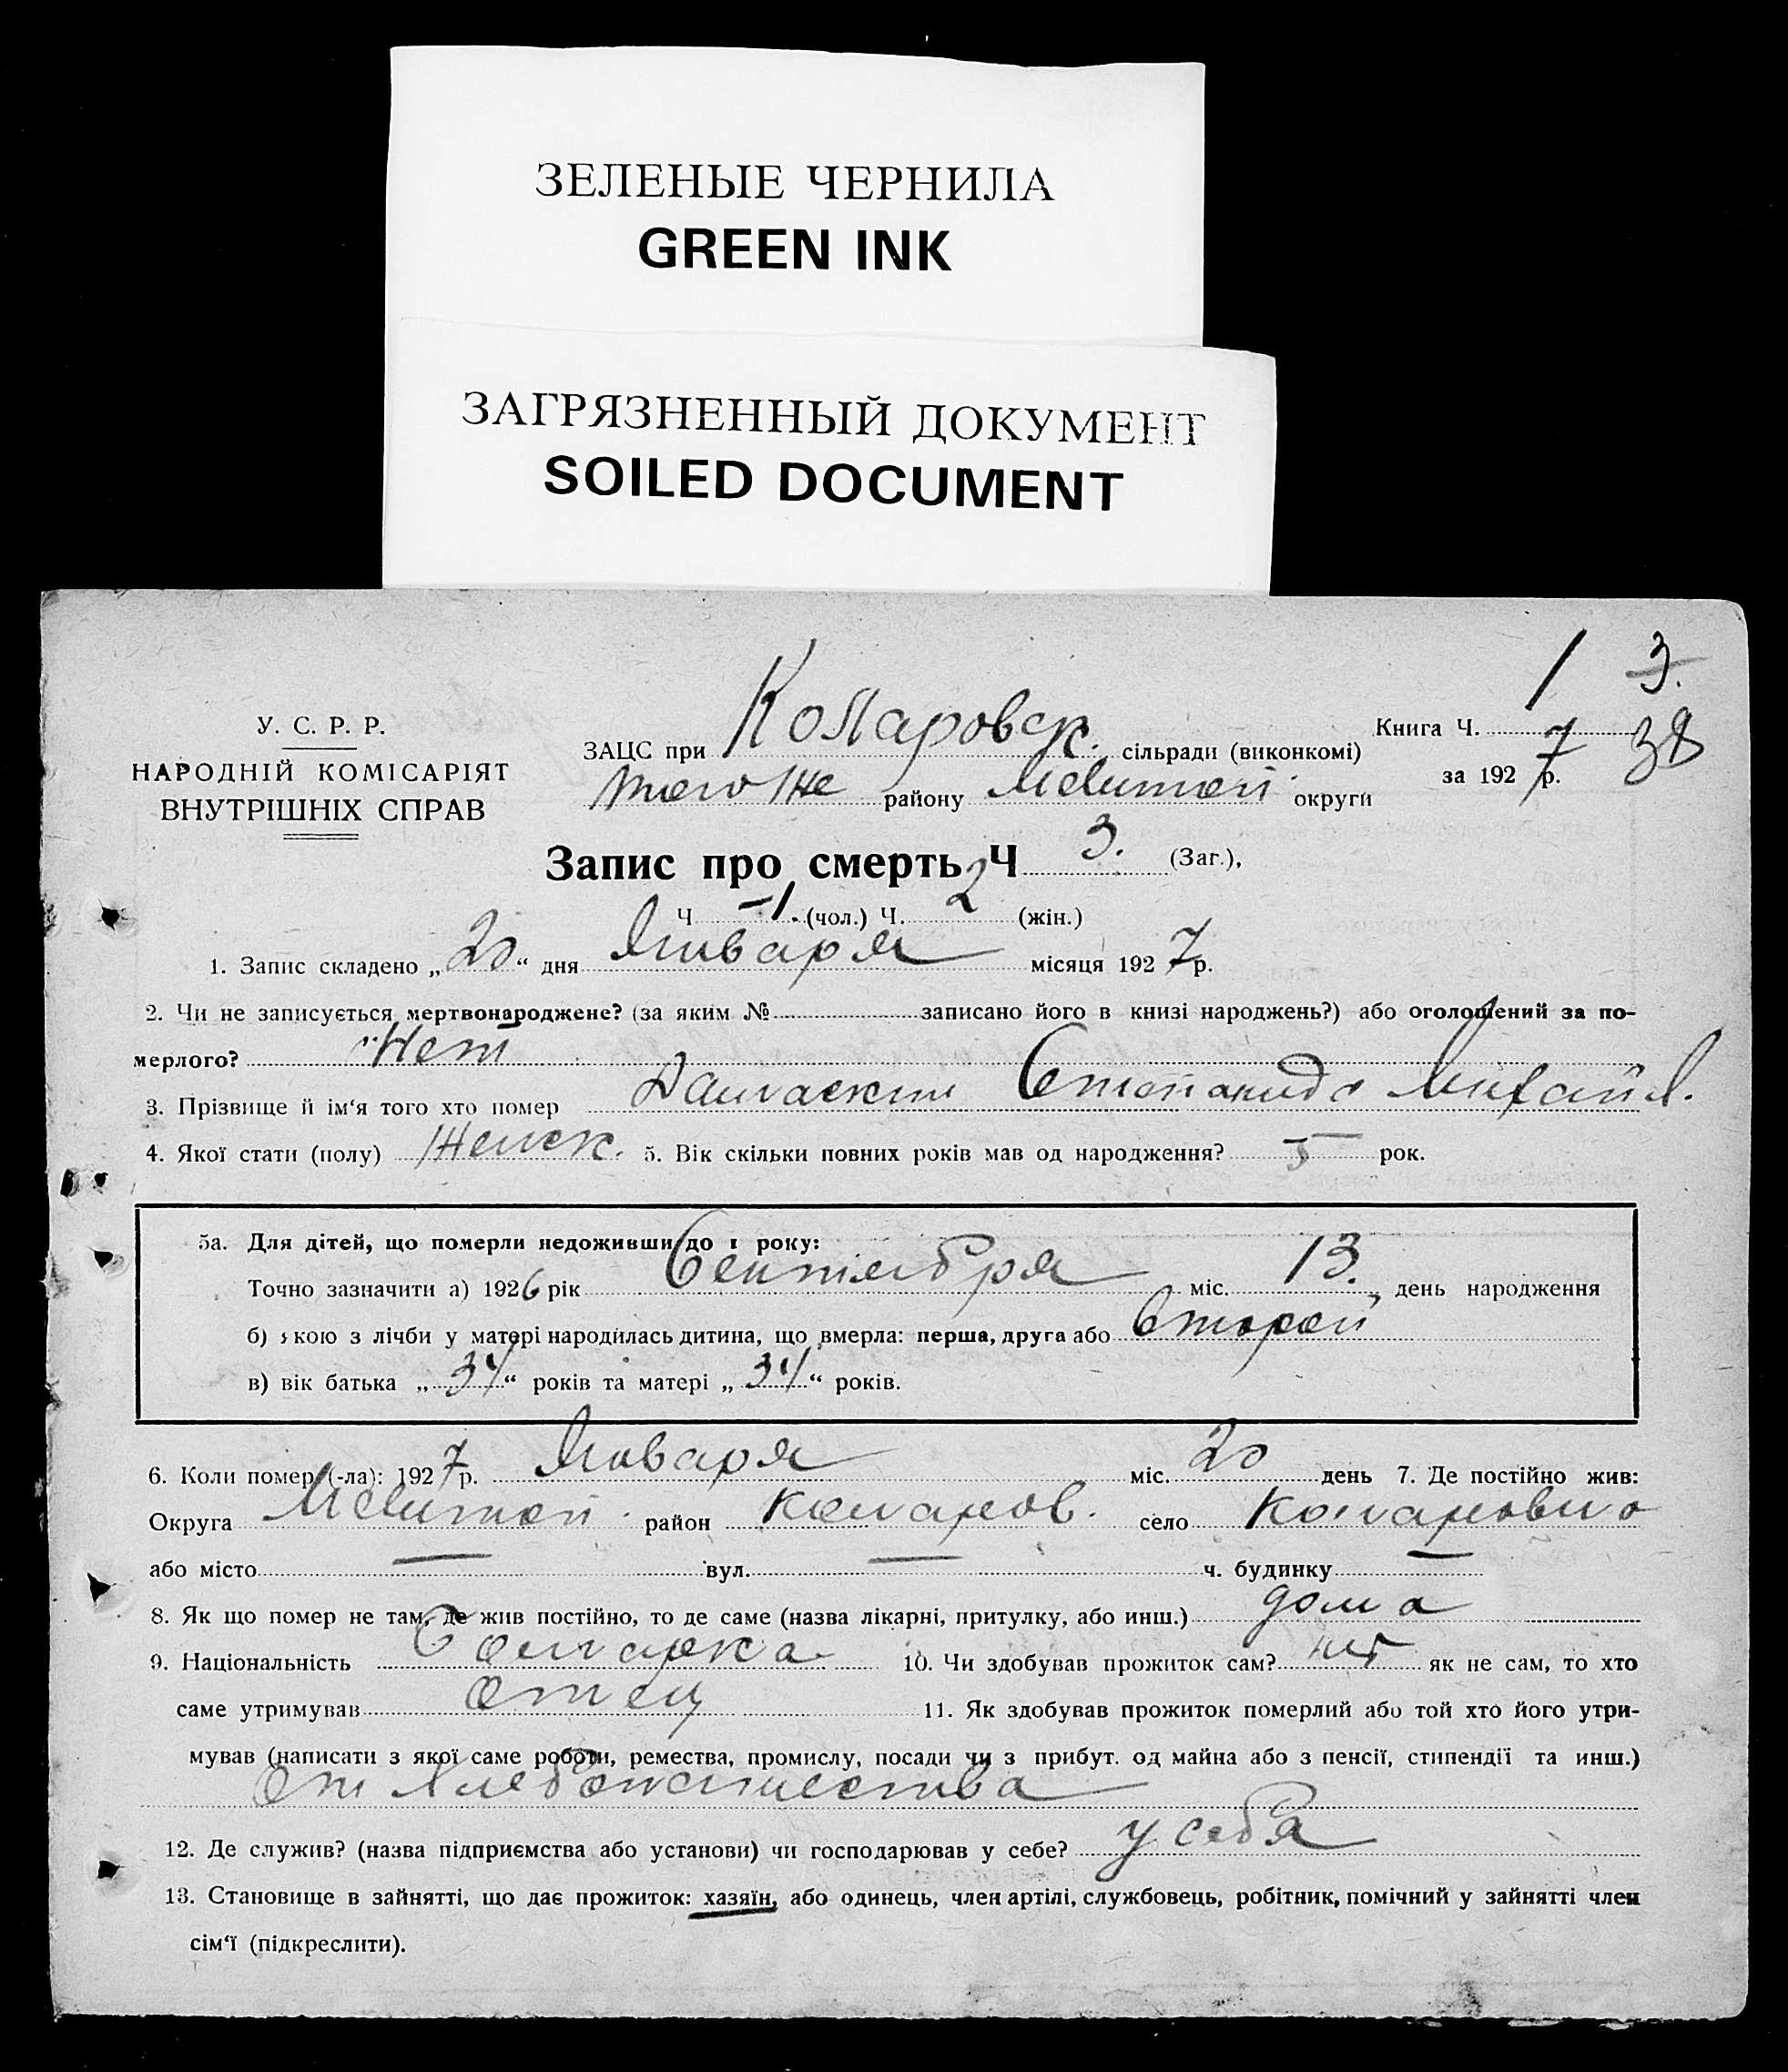 ЗЕЛЕНЫЕ ЧЕРНИЛА
GREEN INK
ЗАГРЯЗНЕННЫЙ ДОКУМЕНТ
SOILED DOCUMENT
1 3.
У. С. Р. Р.
НАРОДНІЙ КОМІСАРІЯТ
ВНУТРІШНІХ СПРАВ
ЗАЦС при Коларовск. сільради (виконкомі)
того же району Мелитоп. округи
Книга Ч.
за 1927 р.
38
Запис про смерть Ч 3. (Заг.),
Ч 1. (чол.) Ч. 2 (жін.)
1. Запис складено „20“ дня Января місяця 1927 р.
2. Чи не записується мертвонароджене? (за яким № записано його в книзі народжень?) або оголошений за по-
мерлого? Нет
3. Прізвище й ім‘я того хто помер Степанида Михайл.
4. Якої стати (полу) Женск. 5. Вік скільки повних років мав од народження? — рок.
5а. Для дітей, що померли недоживши до 1 року:
Точно зазначити а) 1926 рік Сентября міс. 13. день народження
б) якою з лічби у матері народилась дитина, що вмерла: перша, друга або Второй
в) вік батька „34“ років та матері „34“ років.
6. Коли помер (-ла): 1927 р. Января міс. 20 день 7. Де постійно жив:
Округа Мелитоп. район Коларов. село Коларовка
або місто — вул. — ч. будинку —
8. Як що помер не там, де жив постійно, то де саме (назва лікарні, притулку, або инш.) дома
9. Національність Болгарка 10. Чи здобував прожиток сам? нет як не сам, то хто
саме утримував отец 11. Як здобував прожиток померлий або той хто його утри-
мував (написати з якої саме роботи, ремества, промислу, посади чи з прибут. од майна або з пенсії, стипендії та инш.)
От хлебопашества
12. Де служив? (назва підприємства або установи) чи господарював у себе? у себя
13. Становище в зайнятті, що дає прожиток: хазяїн, або одинець, член артілі, службовець, робітник, помічний у зайнятті член
сім‘ї (підкреслити).